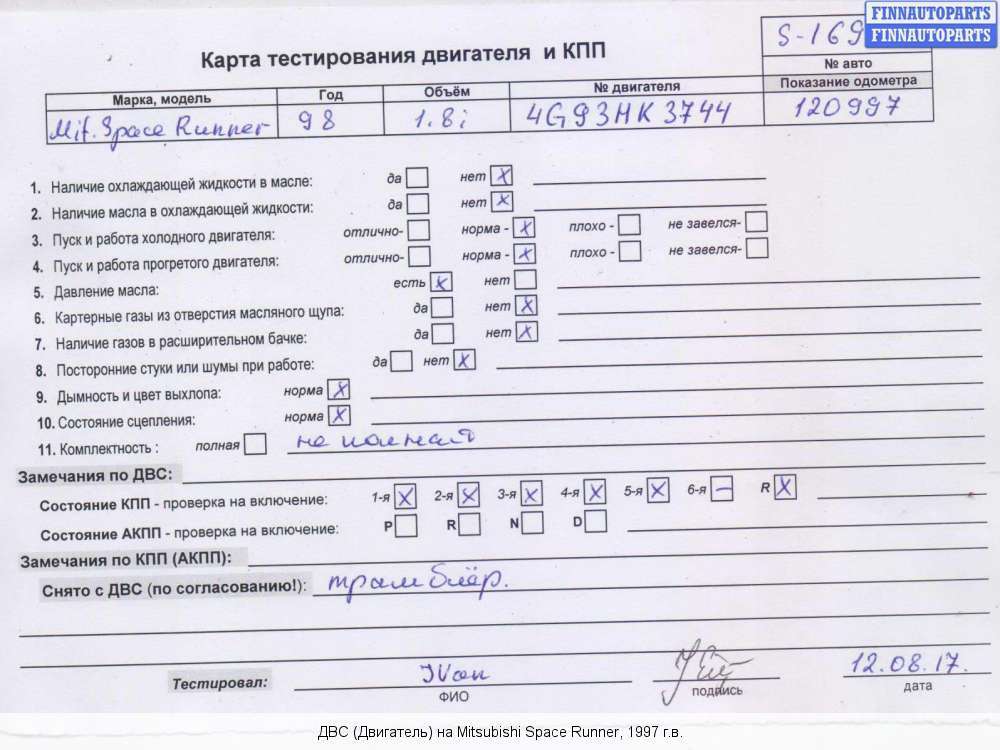 FINNAUTOPARTS
FINNAUTOPARTS
S-169
Карта тестирования двигателя и КПП
№ авто
Марка, модель Год Объём № двигателя Показание одометра
Mit. Space Runner 98 1.8i 4G93HK3744 120997
1. Наличие охлаждающей жидкости в масле: да нет X
2. Наличие масла в охлаждающей жидкости: да нет X
3. Пуск и работа холодного двигателя: отлично- норма - X плохо - не завелся-
4. Пуск и работа прогретого двигателя: отлично- норма - X плохо - не завелся-
5. Давление масла: есть X нет
6. Картерные газы из отверстия масляного щупа: да нет X
7. Наличие газов в расширительном бачке: да нет X
8. Посторонние стуки или шумы при работе: да нет X
9. Дымность и цвет выхлопа: норма X
10. Состояние сцепления: норма X
11. Комплектность : полная не полная
Замечания по ДВС:
Состояние КПП - проверка на включение: 1-я X 2-я X 3-я X 4-я X 5-я X 6-я – R X
Состояние АКПП - проверка на включение: P R N D
Замечания по КПП (АКПП):
Снято с ДВС (по согласованию!): трамблёр.
Тестировал: Ivan 12.08.17.
ФИО подпись дата
ДВС (Двигатель) на Mitsubishi Space Runner, 1997 г.в.